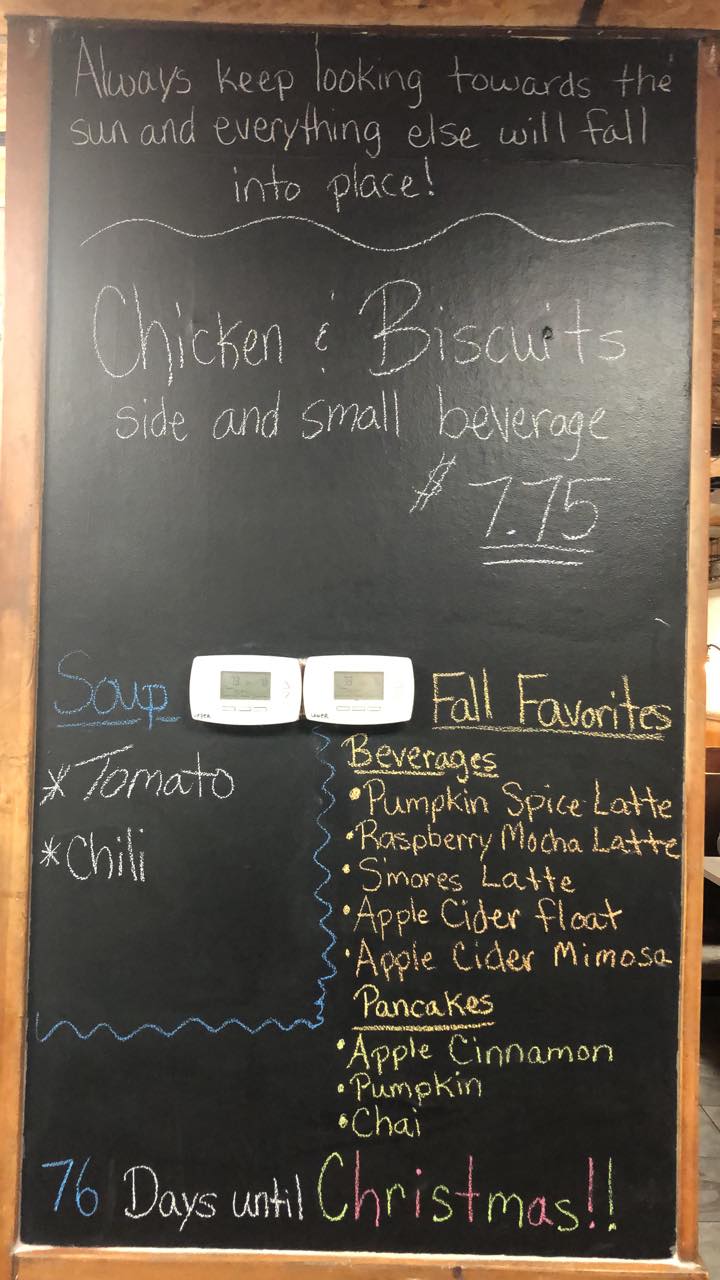 Always keep looking towards the
sun and everything else will fall
into place!
Chicken & Biscuits
side and small beverage
$ 7.75
Soup
* Tomato
* Chili
LOWER
Fall Favorites
Beverages
• Pumpkin Spice Latte
• Raspberry Mocha Latte
• S'mores Latte
• Apple Cider float
• Apple Cider Mimosa
Pancakes
• Apple Cinnamon
• Pumpkin
• Chai
76 Days until Christmas!!